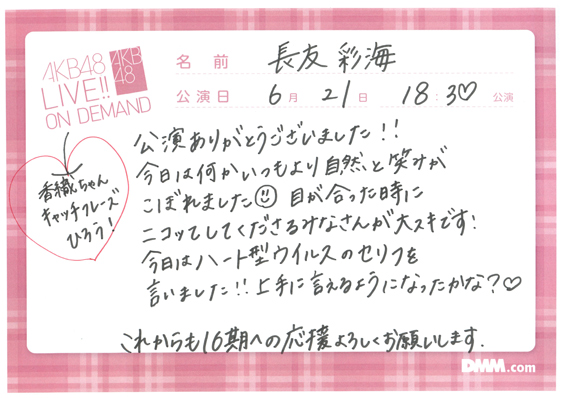 AKB48
LIVE!!
ON DEMAND
AKB
48
名前 長友 彩海
公演日 6月21日 18:30公演
香織ちゃん
キャッチフレーズ
ひろう!
公演ありがとうございました!!
今日は何かいつもより自然と笑みが
こぼれました☺ 目が合った時に
ニコッてしてくださるみなさんが大スキです!
今日はハート型ウイルスのセリフを
言いました!!上手に言えるようになったかな?♡
これからも16期への応援よろしくお願いします.
DMM.com